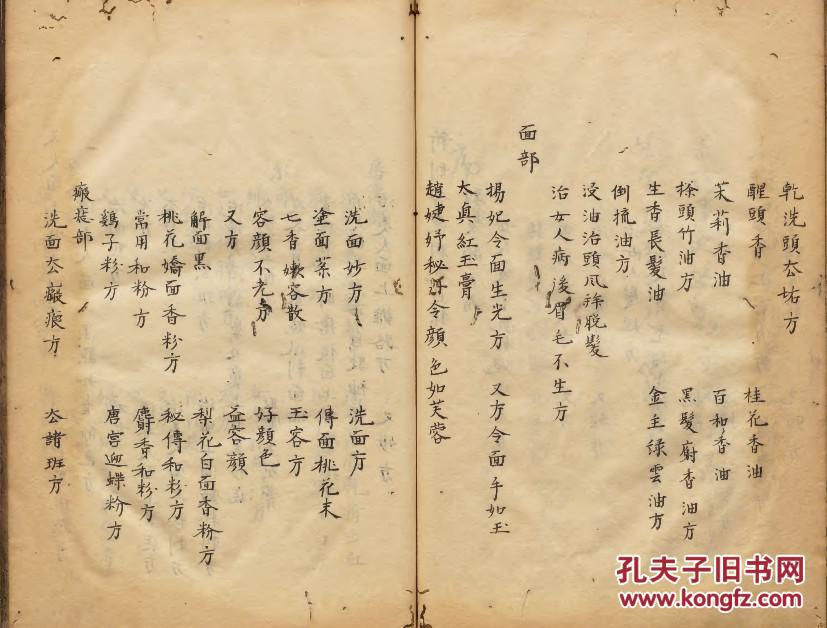 乹洗頭厺垢方
醒頭香　桂花香油
茉莉香油　百和香油
搽頭竹油方　黑髮麝香油方
生香長髮油　金主绿雲油方
倒梳油方
浸油治頭風孫脫髪
治女人病後眉毛不生方
面部
楊妃令面生光方　又方令面手如玉
太眞紅玉膏
趙婕妤秘　令顔色如芙蓉
洗面妙方　洗面方
塗面藥方　傅面桃花末
七香嫰容散　玉容方
容顏不老方　好顏色
又方　益容顏
解面黑　梨花白面香粉方
桃花嬌面香粉方　秘傳和粉方
常用和粉方　麝香和粉方
鷄子粉方　唐宮迎蝶粉方
瘢痣部
洗面厺瘢痕方　厺諸班方
孔夫子旧书网
www.kongfz.com